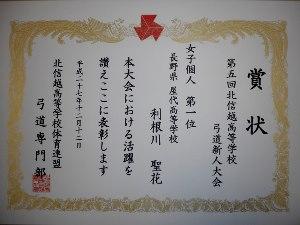 賞状
第五回北信越高等学校
弓道新人大会
女子個人 第一位
長野県 屋代高等学校
利根川 聖花
本大会における活躍を
讃えここに表彰します
平成二十七年十二月十二日
北信越高等学校体育連盟
弓道専門部